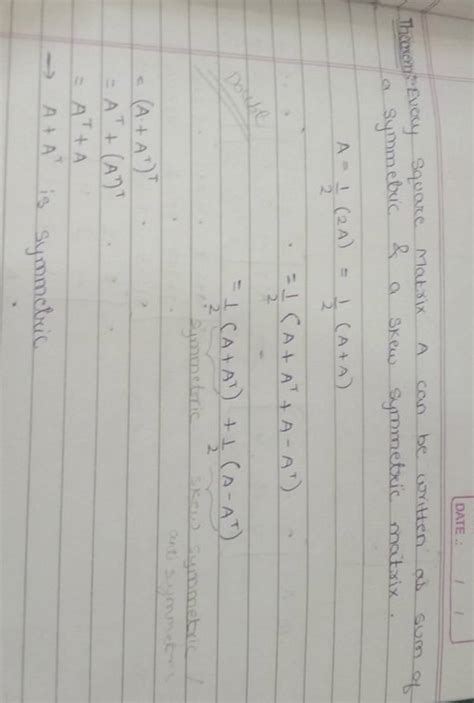 DATE: / /
Theorem:- Every Square Matrix A can be written as sum of
a symmetric & a skew symmetric matrix.
A = 1/2 (2A) = 1/2 (A + A)
= 1/2 (A + Aᵀ + A - Aᵀ)
= 1/2 (A + Aᵀ) + 1/2 (A - Aᵀ)
symmetric skew symmetric /
anti symmetric
= (A + Aᵀ)ᵀ
= Aᵀ + (Aᵀ)ᵀ
= Aᵀ + A
→ A + Aᵀ is symmetric